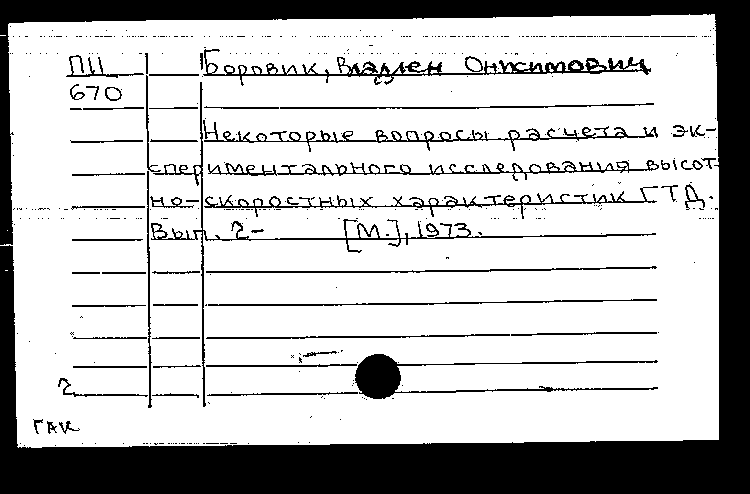 ПII Боровик, Владлен Онисимович
670
Некоторые вопросы расчета и эк-
спериментального исследования высот-
но-скоростных характеристик ГТД.
Вып. 2- [М.], 1973.
2
ГАК